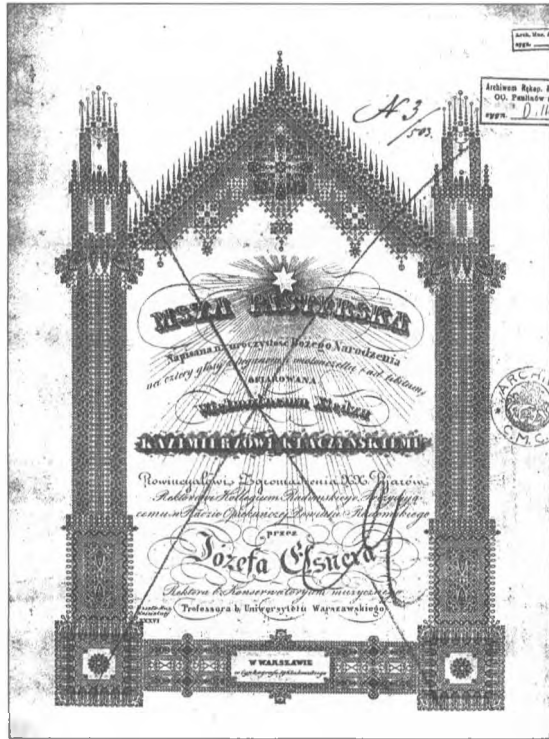 Arch. Muz.
sygn.
Archiwum Rękop.
OO. Paulinów
sygn. D.
N 3
/503.
MSZA PASTORSKA
Napisana na uroczystość Bożego Narodzenia
na cztery głosy z organami, wiolonczellą i ad libitum
OFIAROWANA
Wielmożnemu Księdzu
KAZIMIERZOWI
Prowincyałowi Zgromadzenia XX. Pijarów
Rektorowi Kollegium Radomskiego, Prezydują-
cemu w Radzie Opiekuńczej Powiatu Radomskiego
przez
Józefa Elsnera
Rektora b. Konserwatoryum muzycznego
Professora b. Uniwersytetu Warszawskiego
LXXVI
W WARSZAWIE
ARCHI
C.M.C.